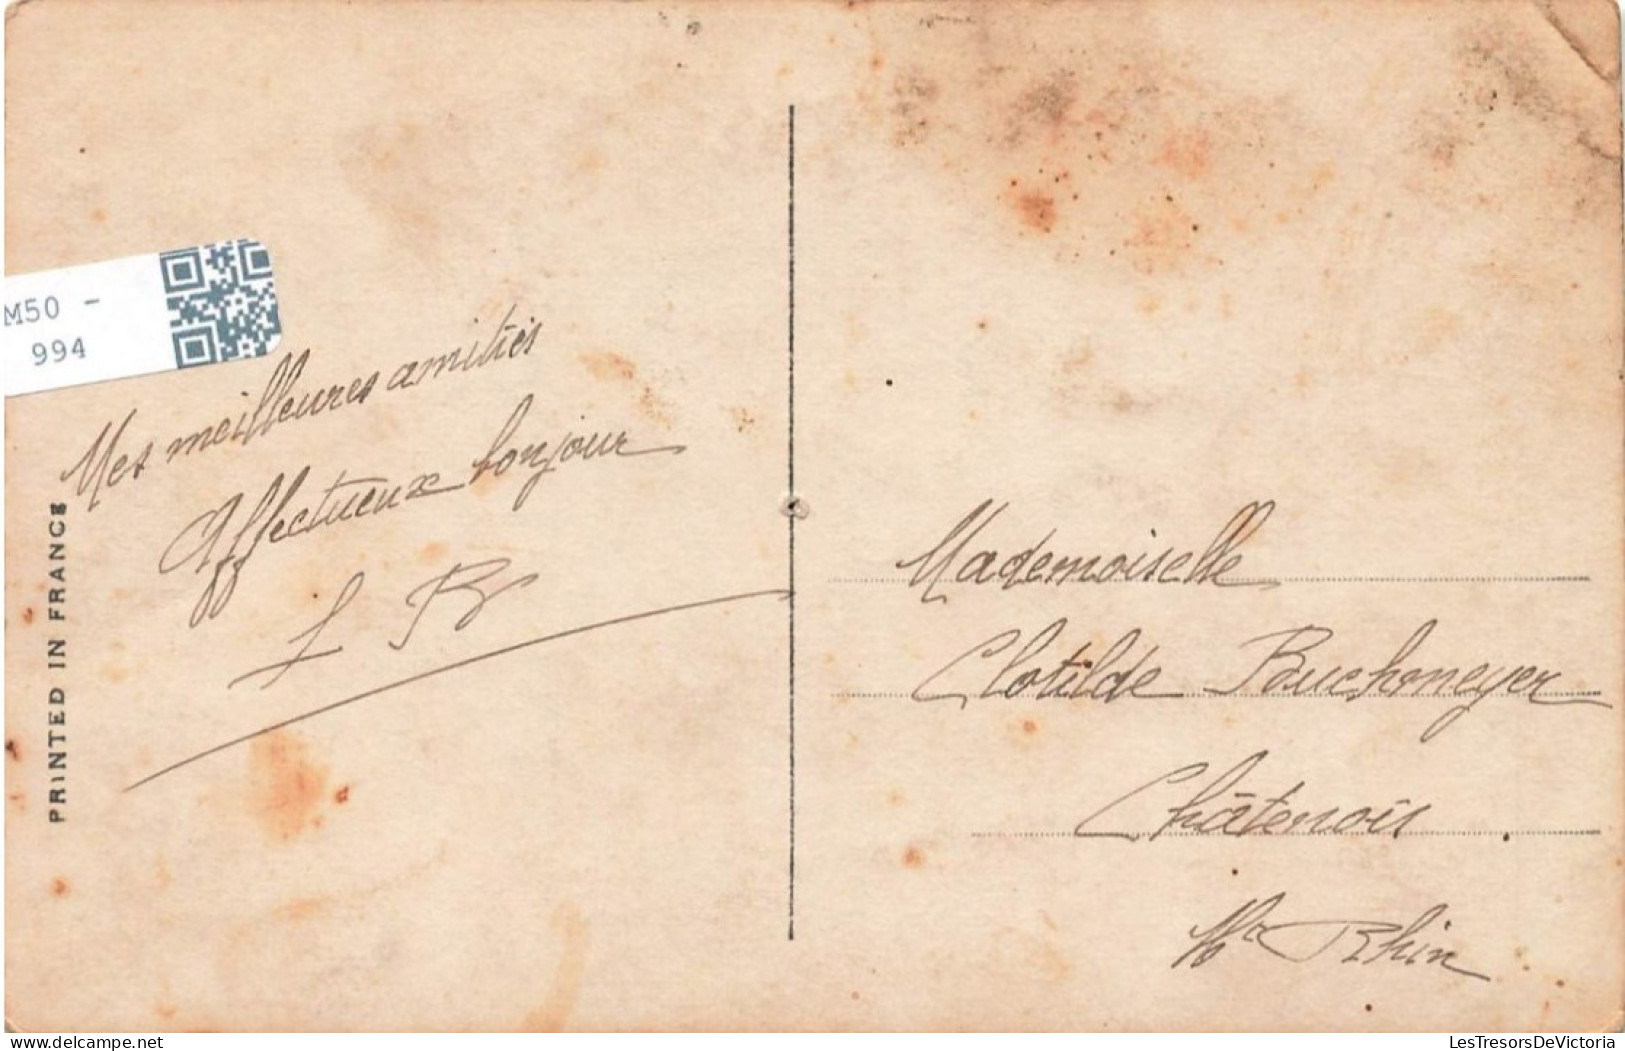 M50 -
994
Mes meilleures amitiés
Affectueux bonjour
PRINTED IN FRANCE
Mademoiselle
Clotilde Buchmeyer
Châtenois
Rhin
delcampe.net
LesTresorsDeVictoria